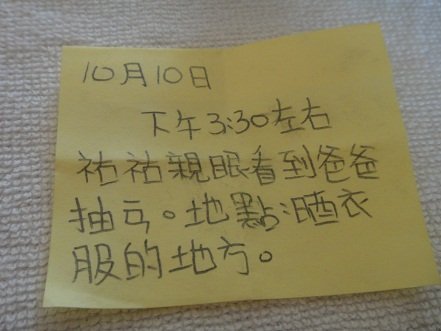 10月10日
下午3:30左右
祐祐親眼看到爸爸
抽ㄧㄢ。地點:晒衣
服的地方。